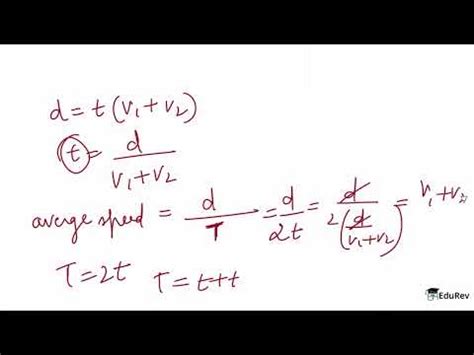 d = t (v₁ + v₂)
t = d / (v₁ + v₂)
average speed = d / T = d / 2t = d / 2(d / (v₁+v₂)) = v₁ + v₂
T = 2t T = t + t
EduRev